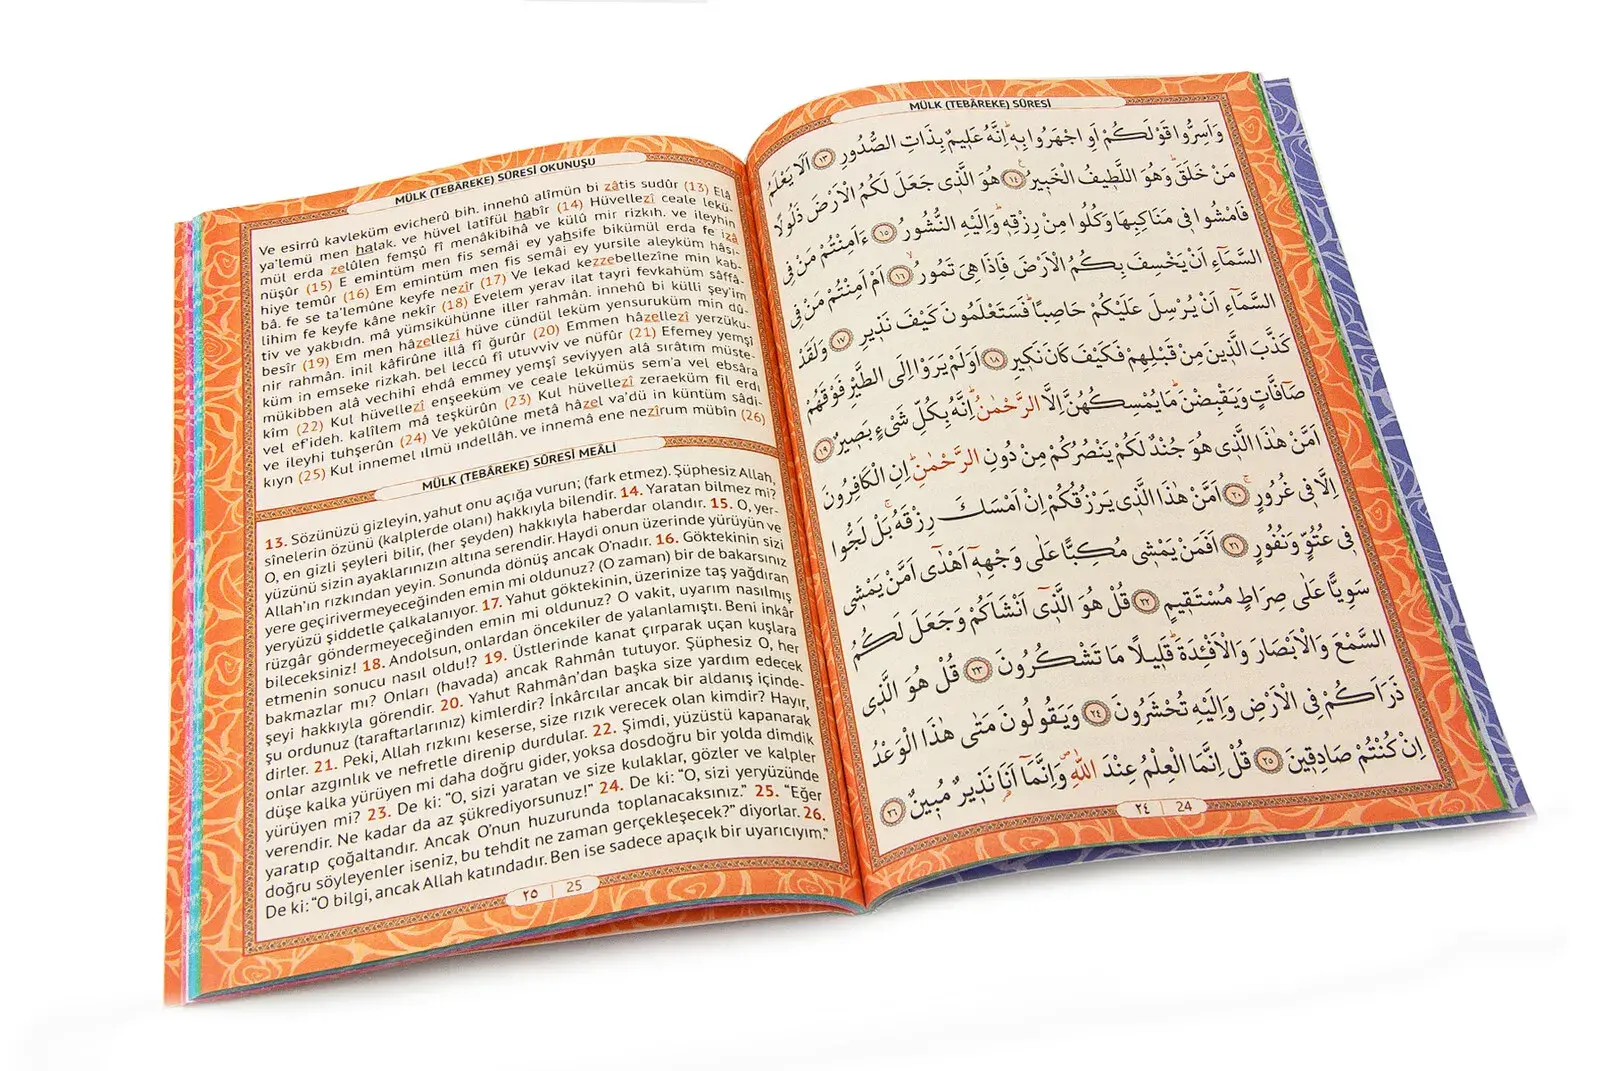 MÜLK (TEBÂREKE) SÛRESİ
وَاَسِرُّوا قَوْلَكُمْ اَوِ اجْهَرُوا بِهٖ اِنَّهُ عَلٖيمٌ بِذَاتِ الصُّدُورِ ﴿١٣﴾ اَلَا يَعْلَمُ
مَنْ خَلَقَ وَهُوَ اللَّطٖيفُ الْخَبٖيرُ ﴿١٤﴾ هُوَ الَّذٖى جَعَلَ لَكُمُ الْاَرْضَ ذَلُولًا
فَامْشُوا فٖى مَنَاكِبِهَا وَكُلُوا مِنْ رِزْقِهٖ وَاِلَيْهِ النُّشُورُ ﴿١٥﴾ ءَاَمِنْتُمْ مَنْ فِى
السَّمَاءِ اَنْ يَخْسِفَ بِكُمُ الْاَرْضَ فَاِذَا هِىَ تَمُورُ ﴿١٦﴾ اَمْ اَمِنْتُمْ مَنْ فِى
السَّمَاءِ اَنْ يُرْسِلَ عَلَيْكُمْ حَاصِبًا فَسَتَعْلَمُونَ كَيْفَ نَذٖيرِ ﴿١٧﴾ وَلَقَدْ
كَذَّبَ الَّذٖينَ مِنْ قَبْلِهِمْ فَكَيْفَ كَانَ نَكٖيرِ ﴿١٨﴾ اَوَلَمْ يَرَوْا اِلَى الطَّيْرِ فَوْقَهُمْ
صَافَّاتٍ وَيَقْبِضْنَ مَا يُمْسِكُهُنَّ اِلَّا الرَّحْمٰنُ اِنَّهُ بِكُلِّ شَىْءٍ بَصٖيرٌ ﴿١٩﴾
اَمَّنْ هٰذَا الَّذٖى هُوَ جُنْدٌ لَكُمْ يَنْصُرُكُمْ مِنْ دُونِ الرَّحْمٰنِ اِنِ الْكَافِرُونَ
اِلَّا فٖى غُرُورٍ ﴿٢٠﴾ اَمَّنْ هٰذَا الَّذٖى يَرْزُقُكُمْ اِنْ اَمْسَكَ رِزْقَهُ بَلْ لَجُّوا
فٖى عُتُوٍّ وَنُفُورٍ ﴿٢١﴾ اَفَمَنْ يَمْشٖى مُكِبًّا عَلٰى وَجْهِهٖ اَهْدٰى اَمَّنْ يَمْشٖى
سَوِيًّا عَلٰى صِرَاطٍ مُسْتَقٖيمٍ ﴿٢٢﴾ قُلْ هُوَ الَّذٖى اَنْشَاَكُمْ وَجَعَلَ لَكُمُ
السَّمْعَ وَالْاَبْصَارَ وَالْاَفْئِدَةَ قَلٖيلًا مَا تَشْكُرُونَ ﴿٢٣﴾ قُلْ هُوَ الَّذٖى
ذَرَاَكُمْ فِى الْاَرْضِ وَاِلَيْهِ تُحْشَرُونَ ﴿٢٤﴾ وَيَقُولُونَ مَتٰى هٰذَا الْوَعْدُ
اِنْ كُنْتُمْ صَادِقٖينَ ﴿٢٥﴾ قُلْ اِنَّمَا الْعِلْمُ عِنْدَ اللّٰهِ وَاِنَّمَا اَنَا نَذٖيرٌ مُبٖينٌ ﴿٢٦﴾
٢٤ | 24
MÜLK (TEBÂREKE) SÛRESİ OKUNUŞU
Ve esirrû kavleküm evicherû bih. innehû alîmün bi zâtis sudûr (13) Elâ
ya'lemü men halak. ve hüvel latîfül habîr (14) Hüvellezî ceale lekü-
mül erda zelûlen femşû fî menâkibihâ ve külû mir rizkıh. ve ileyhin
nüşûr (15) E emintüm men fis semâi ey yahsife bikümül erda fe izâ
hiye temûr (16) Em emintüm men fis semâi ey yursile aleyküm hâsı-
bâ. fe se ta'lemûne keyfe nezîr (17) Ve lekad kezzebellezîne min kab-
lihim fe keyfe kâne nekîr (18) Evelem yerav ilat tayri fevkahüm sâffâ-
tiv ve yakbıdn. mâ yümsikühünne iller rahmân. innehû bi külli şey'im
besîr (19) Em men hâzellezî hüve cündül leküm yensuruküm min dû-
nir rahmân. inil kâfirûne illâ fî ğurûr (20) Emmen hâzellezî yerzüku-
küm in emseke rizkah. bel leccû fî utuvviv ve nüfûr (21) Efemey yemşî
mükibben alâ vechihî ehdâ emmey yemşî seviyyen alâ sırâtım müste-
kîm (22) Kul hüvellezî enşeeküm ve ceale lekümüs sem'a vel ebsâra
vel ef'ideh. kalîlem mâ teşkürûn (23) Kul hüvellezî zeraeküm fil erdı
ve ileyhi tuhşerûn (24) Ve yekûlûne metâ hâzel va'dü in küntüm sâdi-
kıyn (25) Kul innemel ılmü ındellâh. ve innemâ ene nezîrum mübîn (26)
MÜLK (TEBÂREKE) SÛRESİ MEÂLİ
13. Sözünüzü gizleyin, yahut onu açığa vurun; (fark etmez). Şüphesiz Allah,
sînelerin özünü (kalplerde olanı) hakkıyla bilendir. 14. Yaratan bilmez mi?
O, en gizli şeyleri bilir, (her şeyden) hakkıyla haberdar olandır. 15. O, yer-
yüzünü sizin ayaklarınızın altına serendir. Haydi onun üzerinde yürüyün ve
Allah'ın rızkından yeyin. Sonunda dönüş ancak O'nadır. 16. Göktekinin sizi
yere geçirivermeyeceğinden emin mi oldunuz? (O zaman) bir de bakarsınız
yeryüzü şiddetle çalkalanıyor. 17. Yahut göktekinin, üzerinize taş yağdıran
rüzgâr göndermeyeceğinden emin mi oldunuz? O vakit, uyarım nasılmış
bileceksiniz! 18. Andolsun, onlardan öncekiler de yalanlamıştı. Beni inkâr
etmenin sonucu nasıl oldu!? 19. Üstlerinde kanat çırparak uçan kuşlara
bakmazlar mı? Onları (havada) ancak Rahmân tutuyor. Şüphesiz O, her
şeyi hakkıyla görendir. 20. Yahut Rahmân'dan başka size yardım edecek
şu ordunuz (taraftarlarınız) kimlerdir? İnkârcılar ancak bir aldanış içinde-
dirler. 21. Peki, Allah rızkını keserse, size rızık verecek olan kimdir? Hayır,
onlar azgınlık ve nefretle direnip durdular. 22. Şimdi, yüzüstü kapanarak
düşe kalka yürüyen mi daha doğru gider, yoksa dosdoğru bir yolda dimdik
yürüyen mi? 23. De ki: "O, sizi yaratan ve size kulaklar, gözler ve kalpler
verendir. Ne kadar da az şükrediyorsunuz!" 24. De ki: "O, sizi yeryüzünde
yaratıp çoğaltandır. Ancak O'nun huzurunda toplanacaksınız." 25. "Eğer
doğru söyleyenler iseniz, bu tehdit ne zaman gerçekleşecek?" diyorlar. 26.
De ki: "O bilgi, ancak Allah katındadır. Ben ise sadece apaçık bir uyarıcıyım."
٢٥ | 25